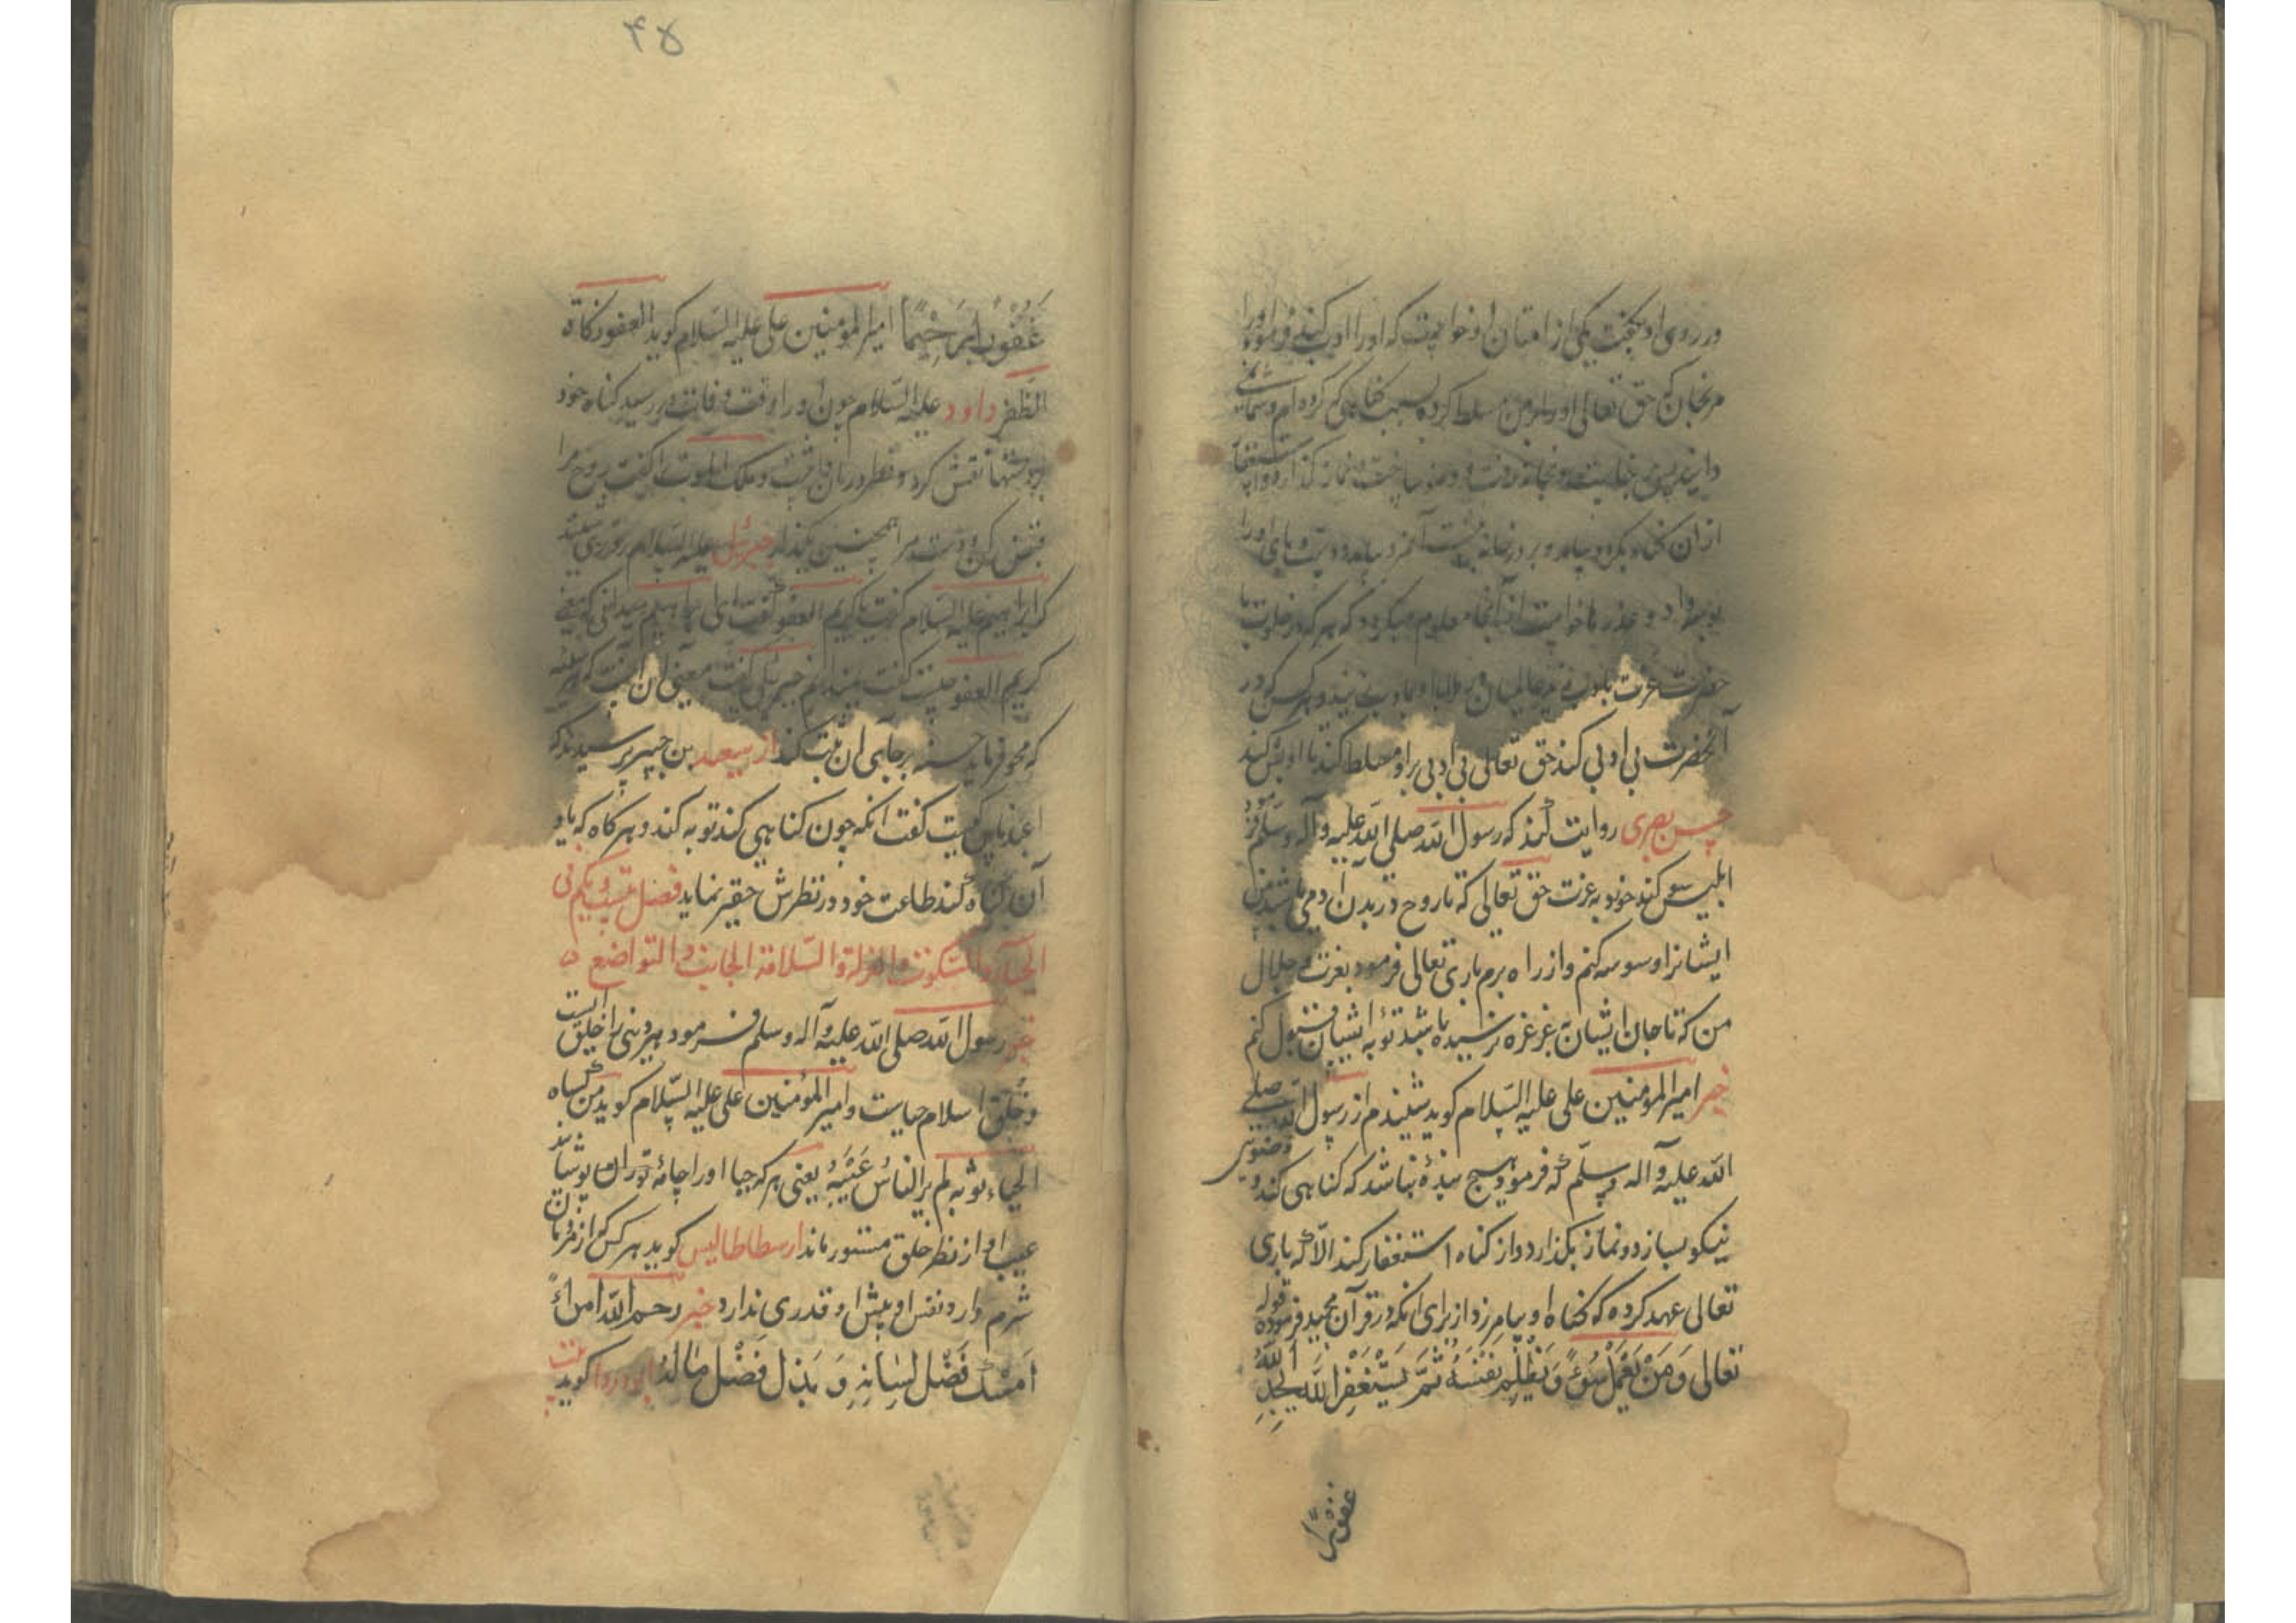 در روی او بگفت یکی از امتان او خواست که او را ادب کند فرمود او را
مرنجان که حق تعالی او را بر من مسلط کرده بسبب گناهی که کرده ام و شمانمی
دانید پس بخانه رفت و وضو ساخت و نماز گذارد و استغفار
از ان گناه بکرد و بیامد و بر در خانه آمرد بیامد و دست و پای او را
بوسه داد و عذرها خواست از آنجا معلوم میگردد که هر که در خلوت با
حضرت عزت بادب عالمیان در ملا با او بادب باشند و هر کس که در
آنحضرت بی ادبی کند حق تعالی بی ادبی بر او مسلط کند تا او بی کند
حسن بصری روایت کند که رسول الله صلی الله علیه وآله وسلم فرمود
ابلیس سوکند خورد بعزت حق تعالی که تا روح در بدن آدمی باشد من
ایشانرا وسوسه کنم و از راه برم باری تعالی فرمود بعزت و جلال
من که تا جان ایشان بغرغره نرسیده باشد توبه ایشان قبول کنم
خبر امیر المؤمنین علی علیه السلام کوید شنیدم از رسول الله صلی
الله علیه وآله وسلم که فرمود هیچ بندهٔ نباشد که کناهی کند و وضوی
نیکو بسازد و نماز بکذارد و از کناه استغفار کند الا که باری
تعالی عهد کرده که کناه او بیامرزد از برای انکه در قرآن مجید فرموده قوله
تعالی وَمَنْ یَعْمَلْ سُوءً وَیَظْلِمْ نَفْسَهُ ثُمَّ یَسْتَغْفِرِ اللهَ یَجِدِ اللهَ
غفوراً
۴۵
غَفُوراً رَحِیْماً امیر المؤمنین علی علیه السلام کوید العفو زکاة
الظفر داود علیه السلام چون او را وقت وفات در رسید کناه خود
بر دستها نقش کرد و نظر در آن و ملک الموت را کفت روح مرا
قبض کن و دست مرا همچنین بگذار جبرئیل علیه السلام روزی شنید
که ابراهیم علیه السلام کفت یا کریم العفو کفت ای ابراهیم میدانی که معنی
کریم العفو چیست کفت نمیدانم جبرئیل کفت معنی ان انست که هر سیئه
که محو فرماید حسنه بر جای ان ثبت کند از سعید بن جبیر پرسیدند که
اعبد ناس کیست کفت انکه چون کناهی کند توبه کند و هر کاه که یاد
آن کناه کند طاعت خود در نظرش حقیر نماید فصل بیست و یکم فی
الحیاء والسکوت والعزلة والسلامة الجانب والتواضع
خبر رسول الله صلی الله علیه وآله وسلم فرمود هر دینی را خلقی است
و خلق اسلام حیاست و امیر المؤمنین علی علیه السلام کوید من کساه
الحیاء ثوبه لم یر الناس عَیْبَهُ یعنی هر که حیا او را جامهٔ توران پوشاند
عیب او از نظر خلق مستور ماند ارسطاطالیس کوید هر کس که از مردمان
شرم دارد نفس او پیش او قدری ندارد خبر رحم الله امرأً
اَمْسَكَ فَضْلَ لِسَانِهِ وَ بَذَلَ فَضْلَ مَالِهُ ابو دردا کوید